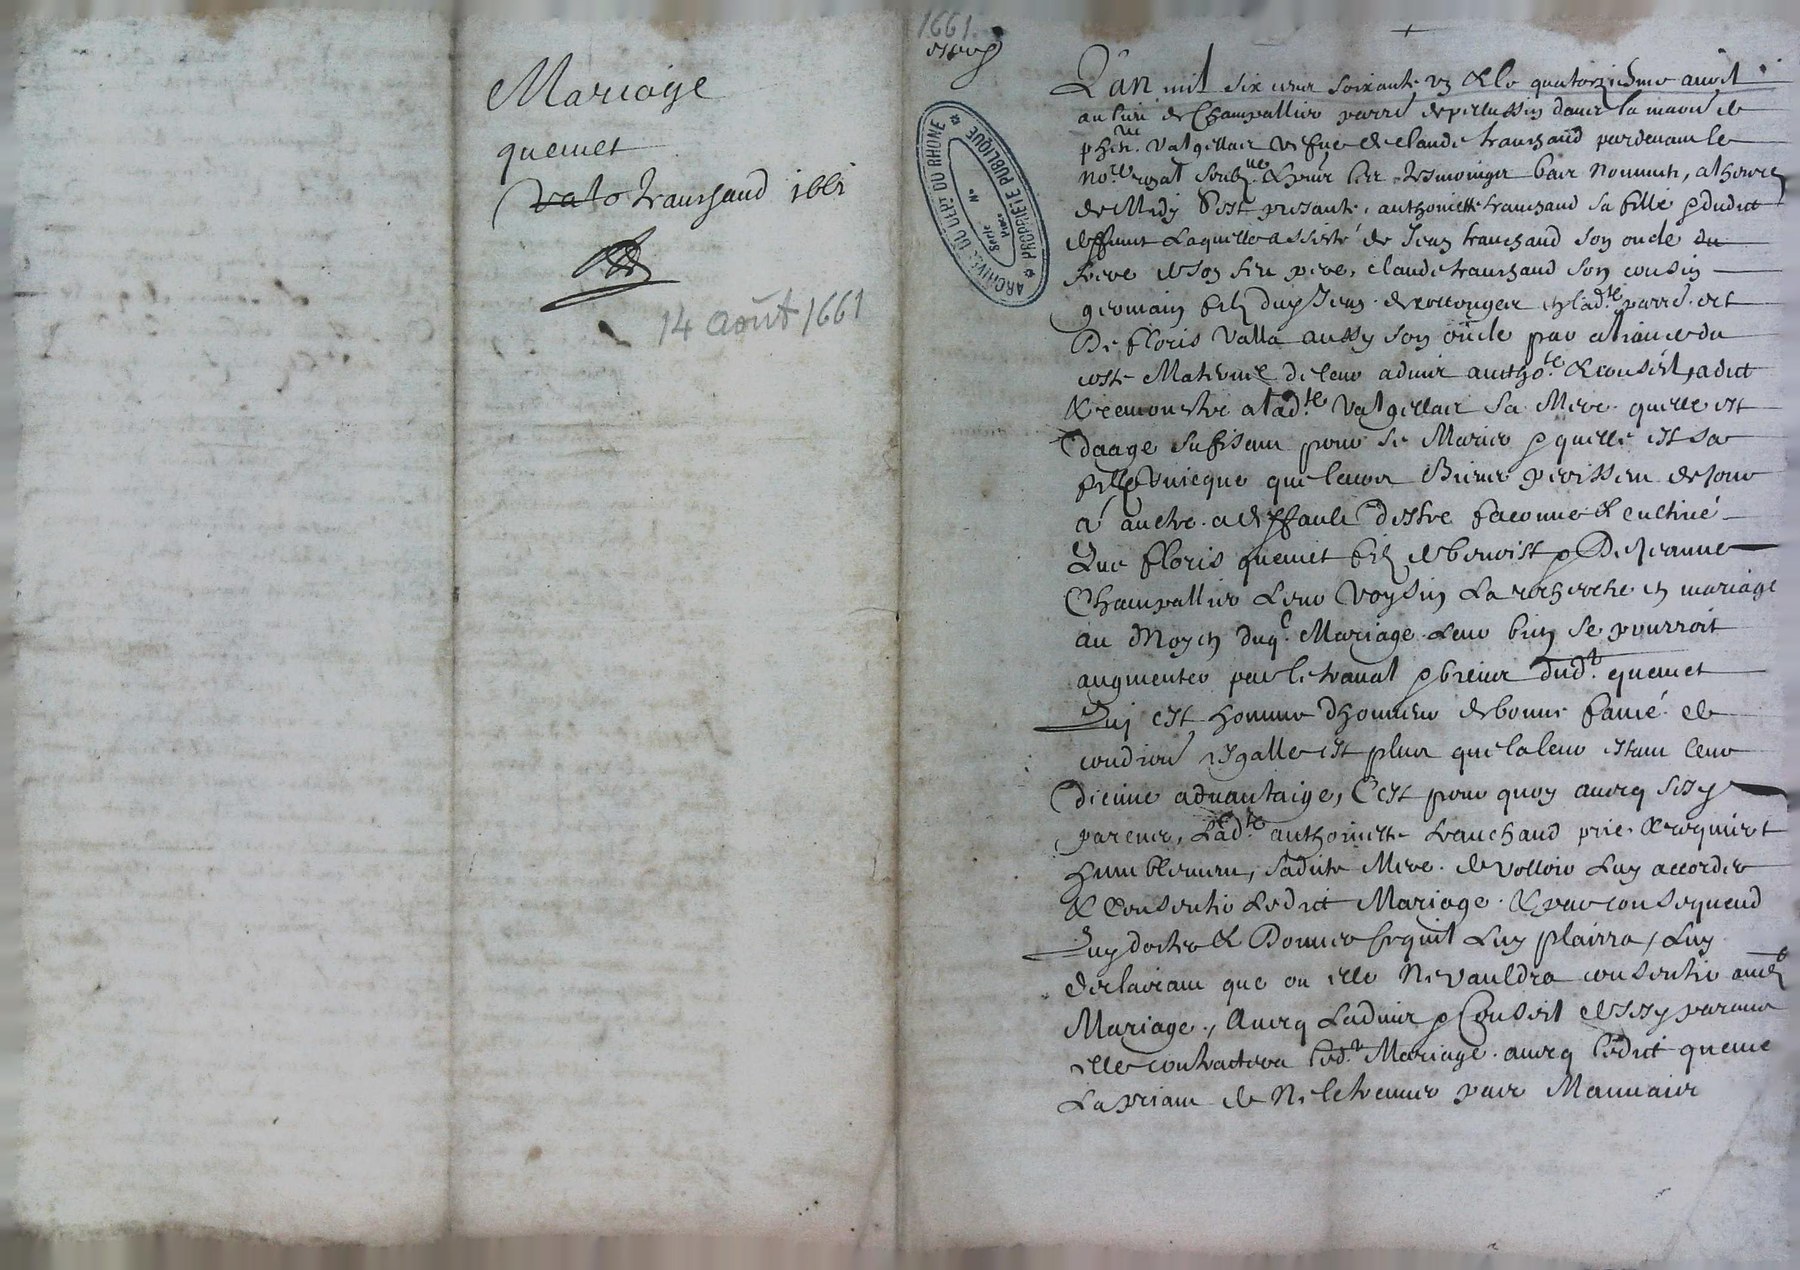 Mariage
quemet
vato tranchand 1661
14 août 1661
1661
ARCHIVES DU DÉPt DU RHONE
PROPRIÉTÉ PUBLIQUE
Série
Nº
L'an mil six cens soixante un & le quatorziesme aoust
au lieu de Champallier parre de perlussin dans la maison de
valgellas vefve de claude tranchand pardevant le
nore royal soubzne & pnt les tesmoings bas nommes, a heure
de Midy S'est presante, anthoinette tranchand sa fille & dudict
deffunt Laquelle assistè de Jean tranchand son oncle du
frere de son feu pere, claude tranchand son cousin
germain filz dun Jean en ladte parre et
De floris valla aussy son oncle par aliance du
costé Maternel de leur advis auctho.te & conseil, a dict
& remonstre a ladte valgellas sa Mere quelle est
daage sufisant pour se Marier & quelle est sa
fille unicque que leurs Biens perissent de jour
a autre a deffault d'estre façonne & cultivé
Que floris quemet filz de benoist & De Jeanne
Champallier Leur voysin La recherche en mariage
au Moyen duql Mariage Leur bien se pourroit
augmenter par le travail & biens dudt quemet
Quy est homme dhonneur de bonne famé et de
condition esgalle et plus que la leur estant leur
advantaige, C'est pour quoy avecq sesd
parens, Ladte anthoinette tranchand prie & requiert
humblement, sadite Mere de volloir Luy accorder
& Consentir Ledict Mariage & par consequend
Luy docter & Donner ce quil Luy plairra, Luy
declairant que ou elle Ne vauldra consentir aud
Mariage, Avecq Ladvis & Conseil de sesd parans
elle contractera ledt Mariage avecq ledict queme
La priant de Ne le trenner pas Mauvais